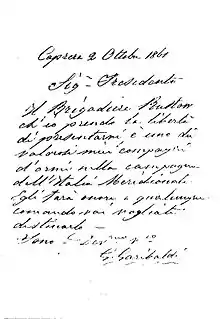 Caprera 2 Ottobre 1861
Sigr Presidente
Il Brigadiere Ruston
ch'io prendo la libertà
di presentarvi è uno di
valorosi miei compagni
d'armi nella campagna
dell'Italia Meridionale
Egli farà onore a qualunque
comando voi vogliate
destinarlo -
Sono
G. Garibaldi